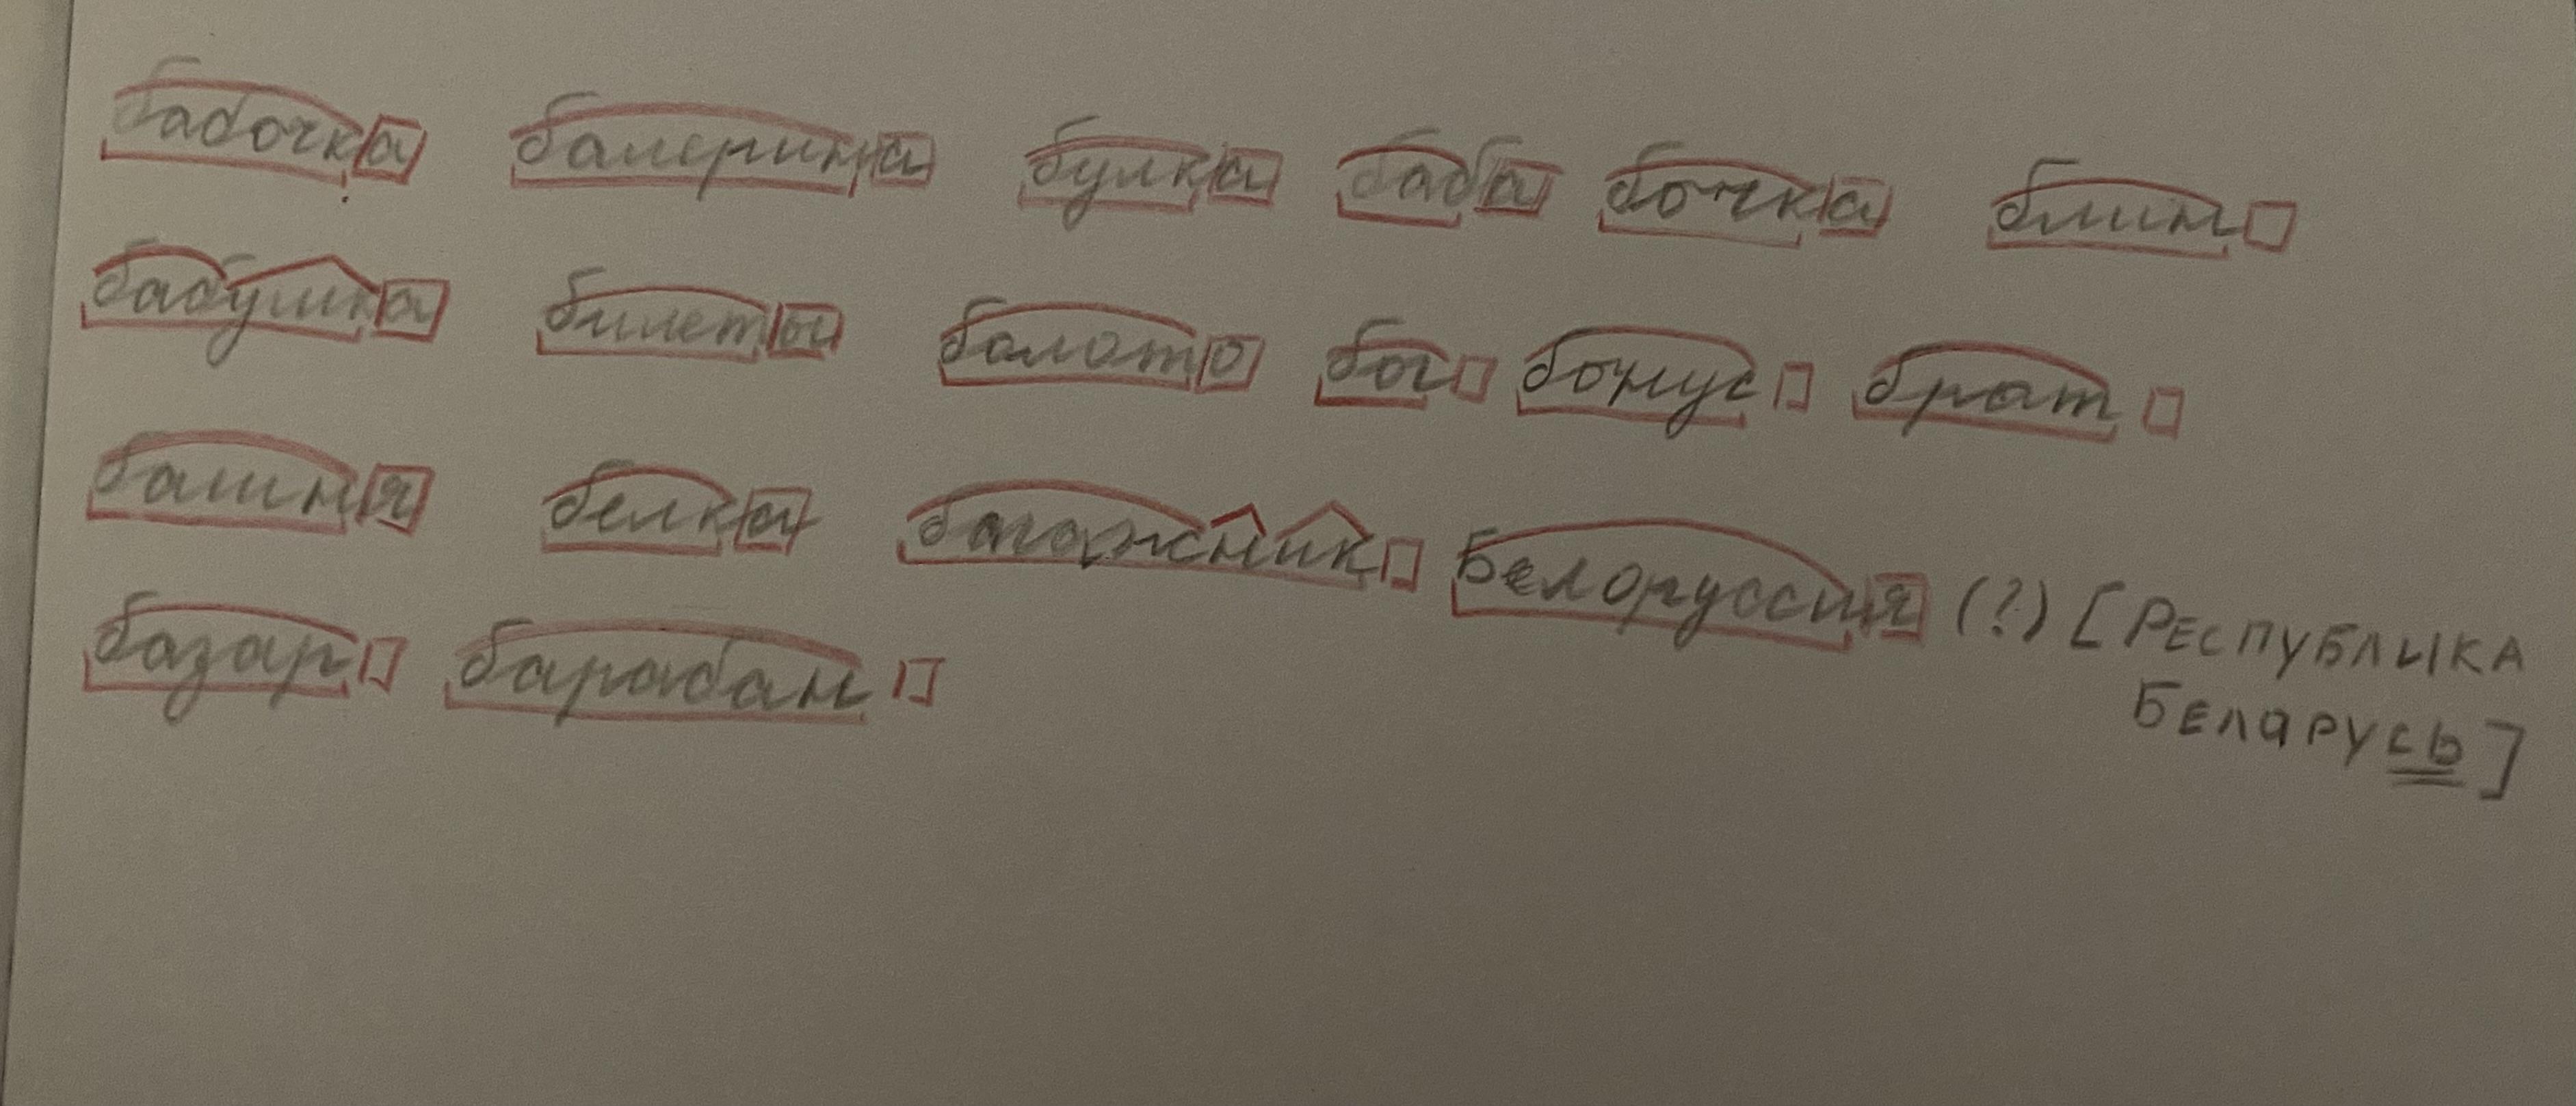 бабочка балерина булка баба бочка блин
бабушка билеты болото бог бонус брат
башня белка багажник Белоруссия (?) [РЕСПУБЛИКА
БЕЛАРУСЬ]
базар барабан